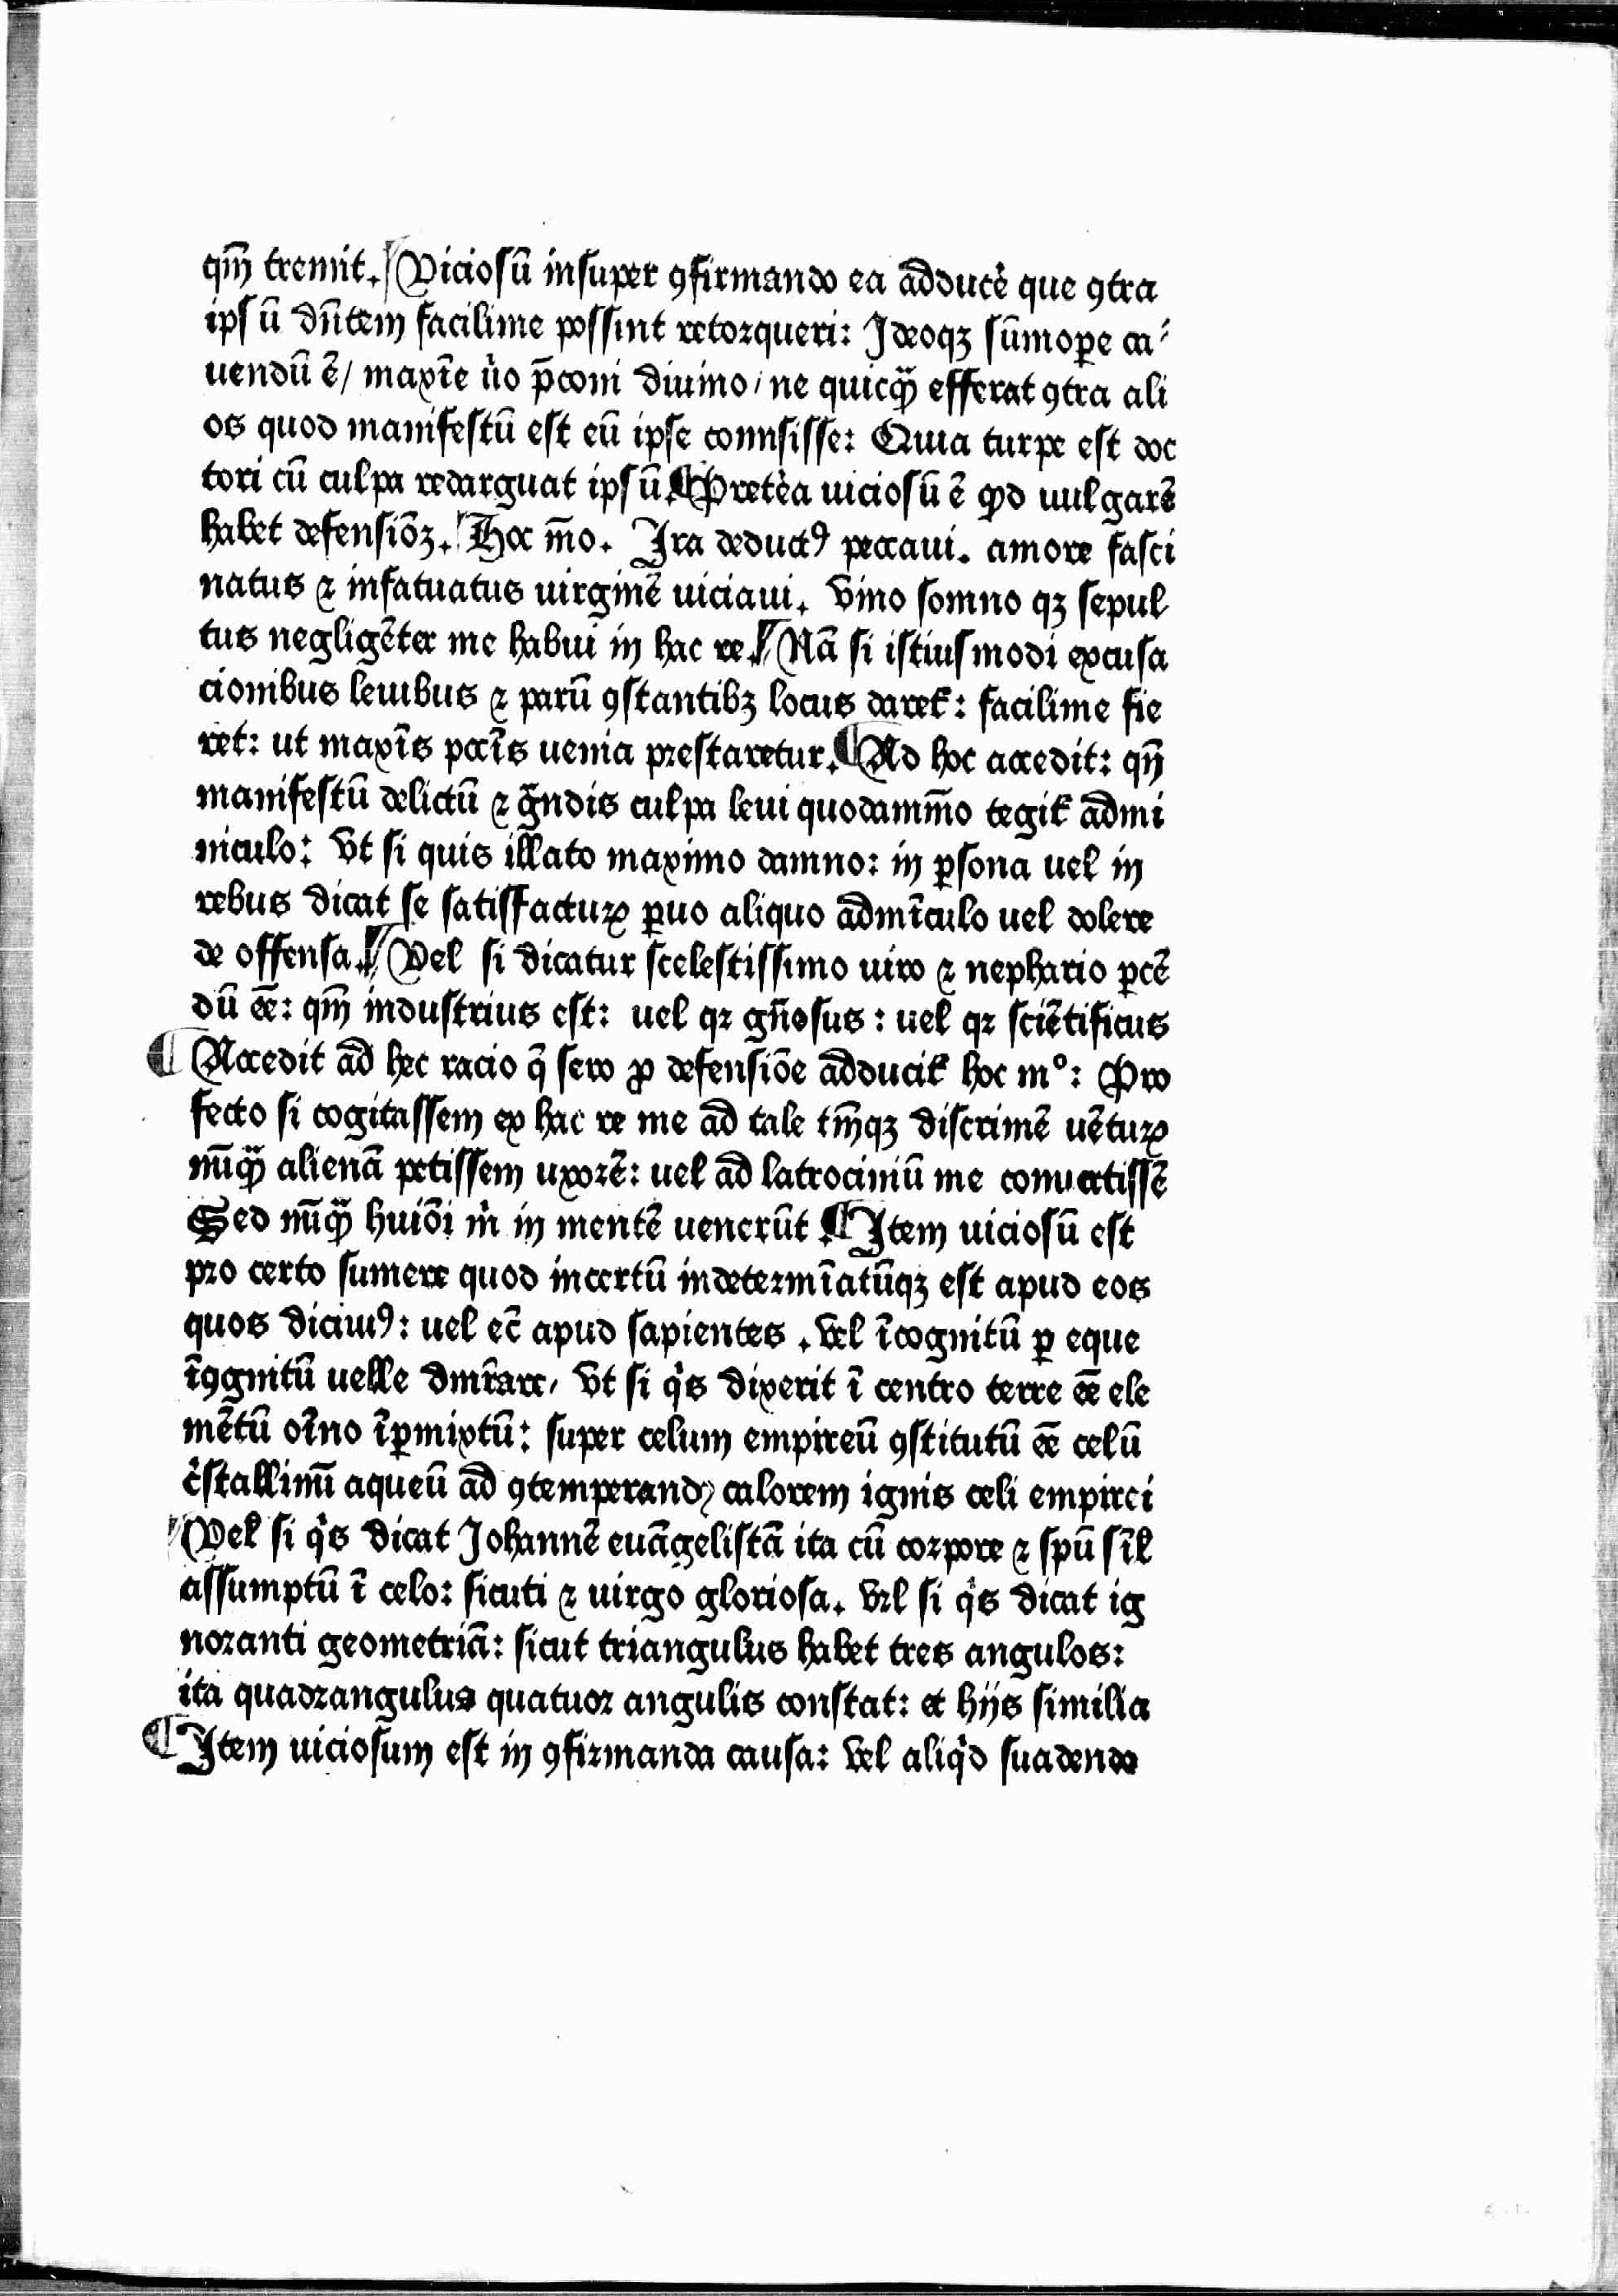 qm̄ tremit. Viciosū insuper ꝯfirmando ea adducẻ que ꝯtra
ipsū dn̄tem facilime possint retorqueri: Ideoqꝫ sūmoꝑe ca⸗
uendū ē/ maxīe ủo p̄coni diuino/ ne quicqꝫ̄ efferat ꝯtra ali
os quod manifestū est eū ipse comisisse: Quia turpe est doc
tori cū culpa redarguat ipsū. ¶ Pretẻa uiciosū ē ꝙd uulgarē
habet defensiōꝫ. Hoc m̄o. Ira deductꝰ peccaui. amore fasci
natus ⁊ infatuatus uirginē uiciaui. Vino somno qꝫ sepul
tus negligēter me habui in hac re. Nā si istiusmodi excusa
cionibus leuibus ⁊ parū ꝯstantibꝫ locus daret᷑: facilime fie
ret: ut maxīs pctīs uenia prestaretur. ¶ Ad hoc accedit: qn̄
manifestū delictū ⁊ gᷓndis culpa leui quodamm̄o tegit᷑ admi
niculo: Vt si quis illato maximo damno: in ꝑsona uel in
rebus dicat se satisfacturꝝ ꝑuo aliquo admīculo uel dolere
de offensa. Vel si dicatur scelestissimo uiro ⁊ nephario ꝑcē
dū eē: qm̄ industrius est: uel qꝛ gn̄osus: uel qꝛ sciētificus
¶ Accedit ad hec racio q̄ sero ꝓ defensiōe adducit᷑ hoc mº: Pro
fecto si cogitassem ex hac re me ad tale tm̄qꝫ discrimē uēturꝝ
nūqꝫ̄ alienā petissem uxorē: uel ad latrociniū me conuertissē
Sed nūqꝫ̄ huiōi m̉ in mentē uenerūt ¶ Item uiciosū est
pro certo sumere quod incertū indetermīatūqꝫ est apud eos
quos dicimꝰ: uel ec̄ apud sapientes. Vel īcognitū ꝑ eque
īꝯgnitū uelle dmr̄are, Vt si qͥs dixerit ī centro terre eē ele
mētū oīno īꝑmixtū: super celum empireū ꝯstitutū eē celū
cͥstallinū aqueū ad ꝯtemperandꝫ calorem ignis celi empirei
Vel si qͥs dicat Johannē euāgelistā ita cū corpore ⁊ spū sīl
assumptū ī celo: sicuti ⁊ uirgo gloriosa. Vel si qͥs dicat ig
noranti geometriā: sicut triangulus habet tres angulos:
ita quadrangulus quatuor angulis constat: et hijs similia
¶ Item uiciosum est in ꝯfirmanda causa: Vel aliqͥd suadendo